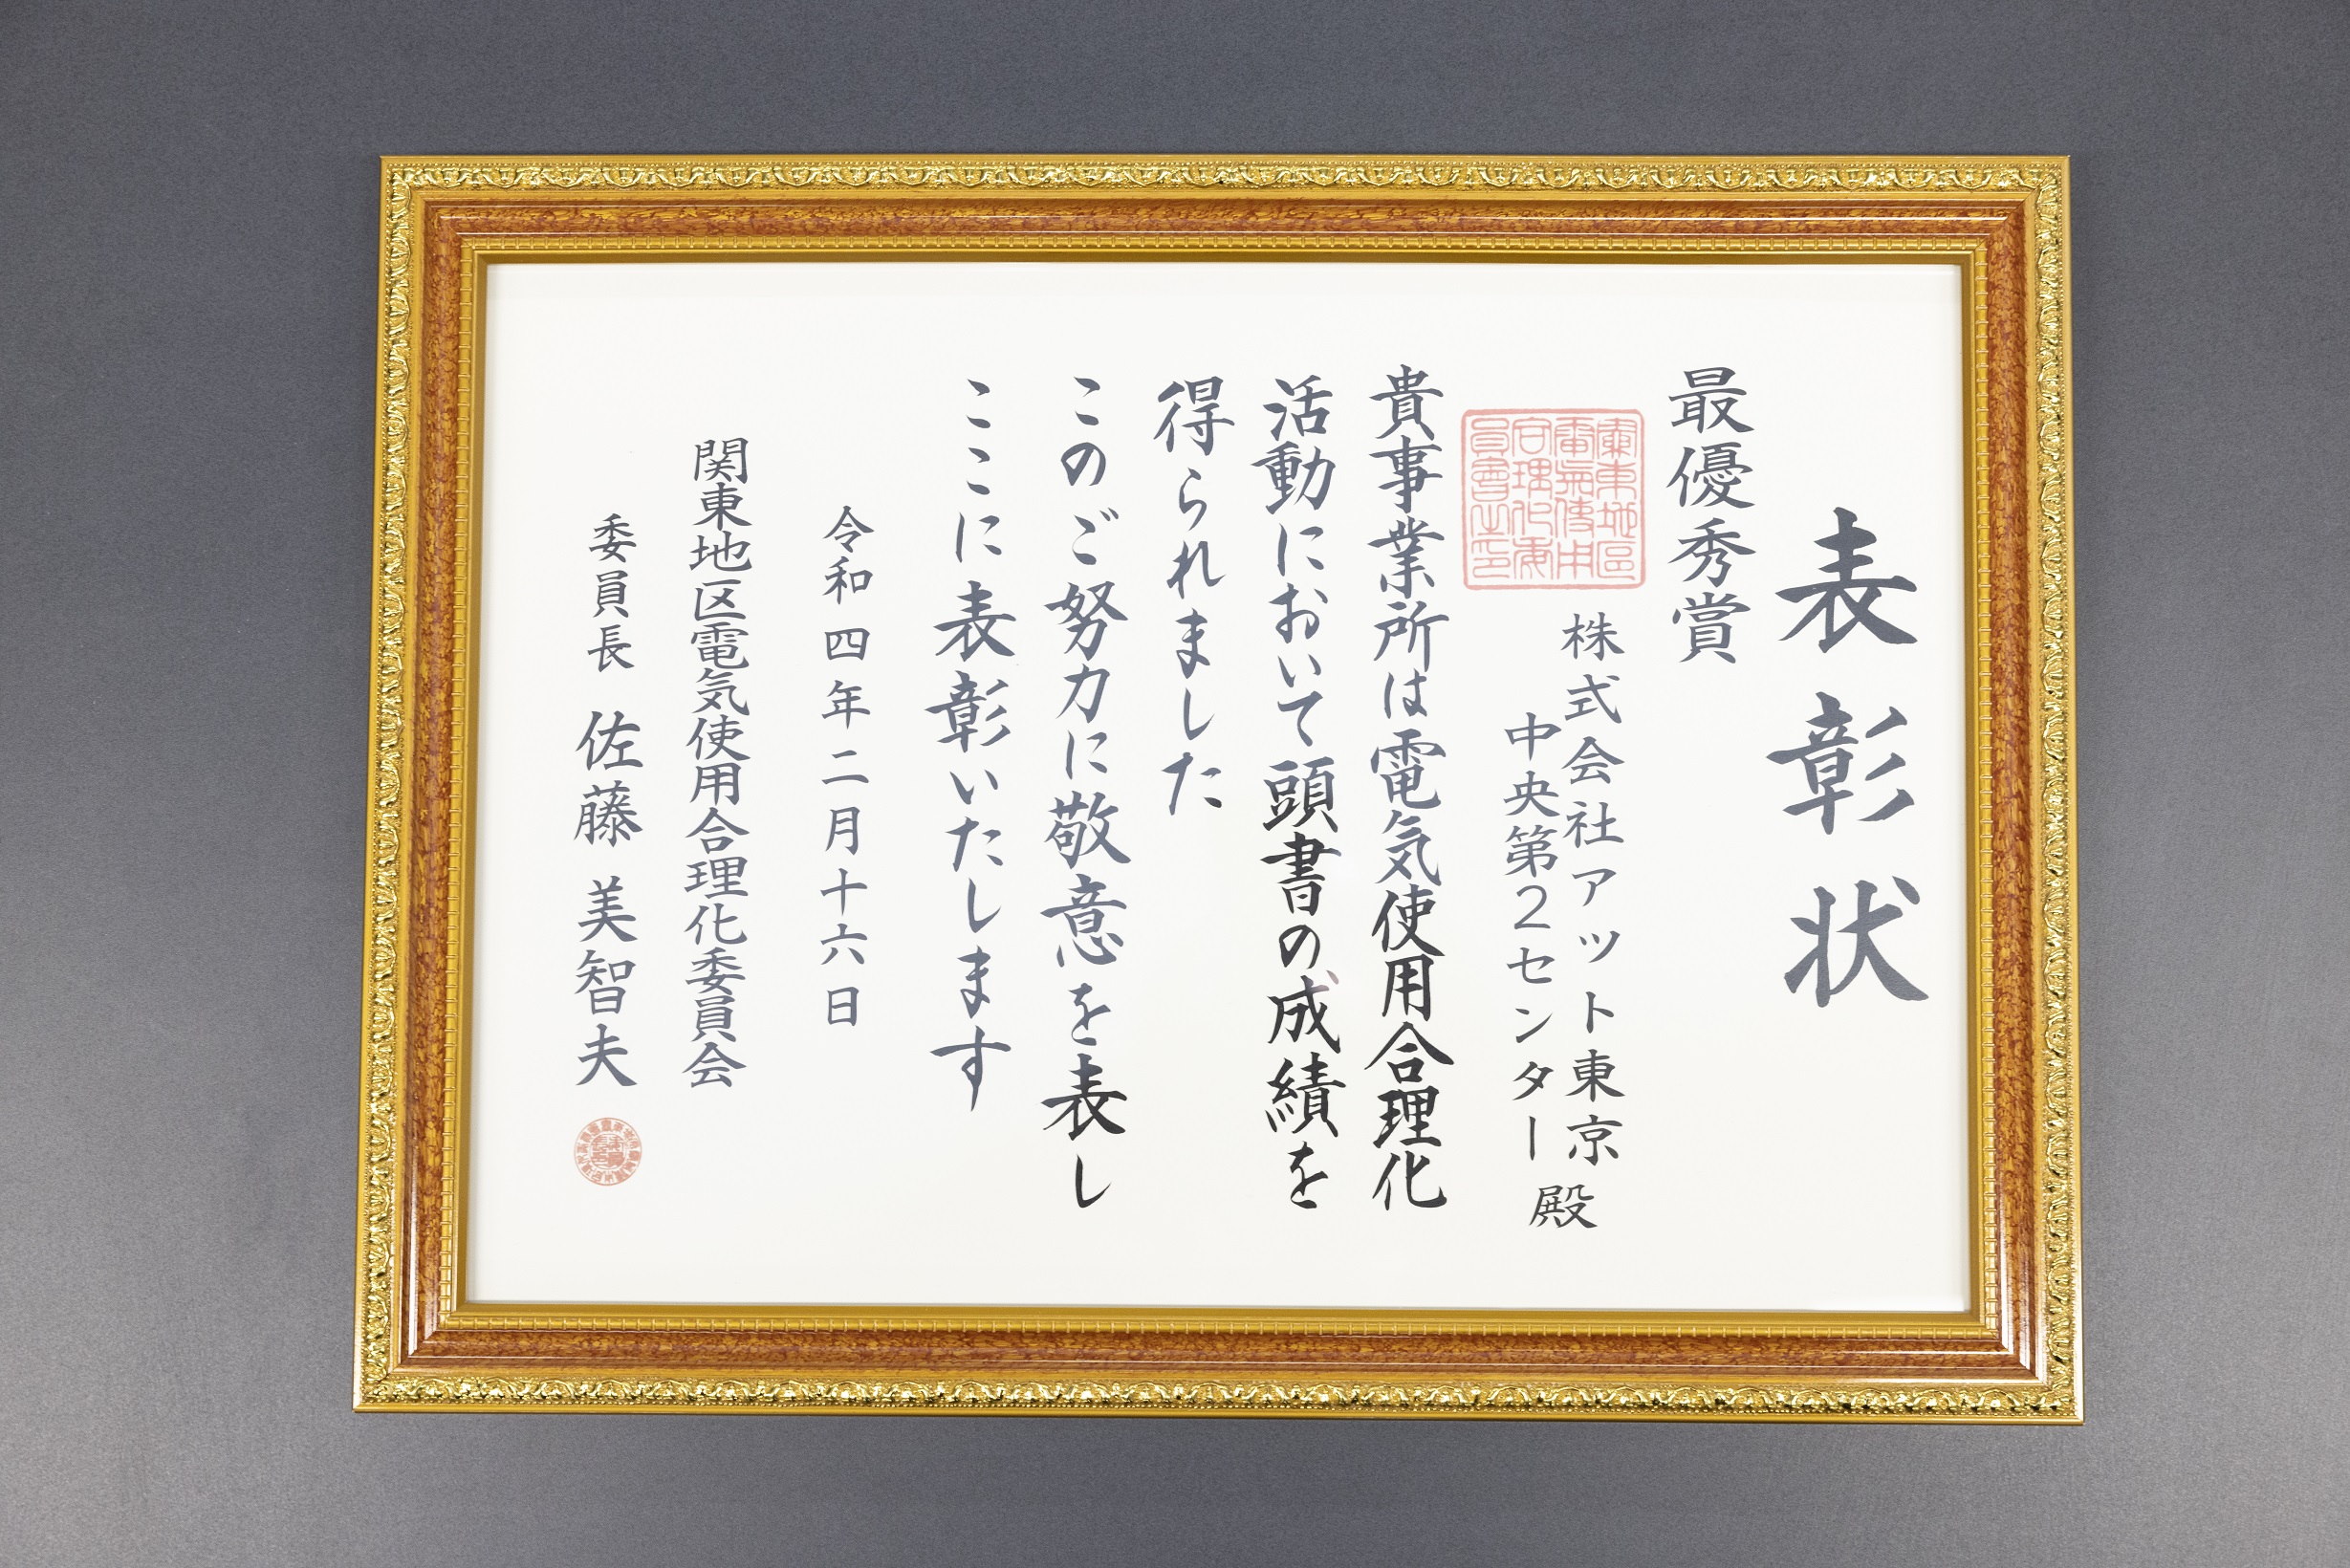 表彰状
最優秀賞
株式会社アット東京
中央第2センター
殿
貴事業所は電気使用合理化
活動において頭書の成績を
得られました
このご努力に敬意を表し
ここに表彰いたします
令和四年二月十六日
関東地区電気使用合理化委員会
委員長 佐藤 美智夫